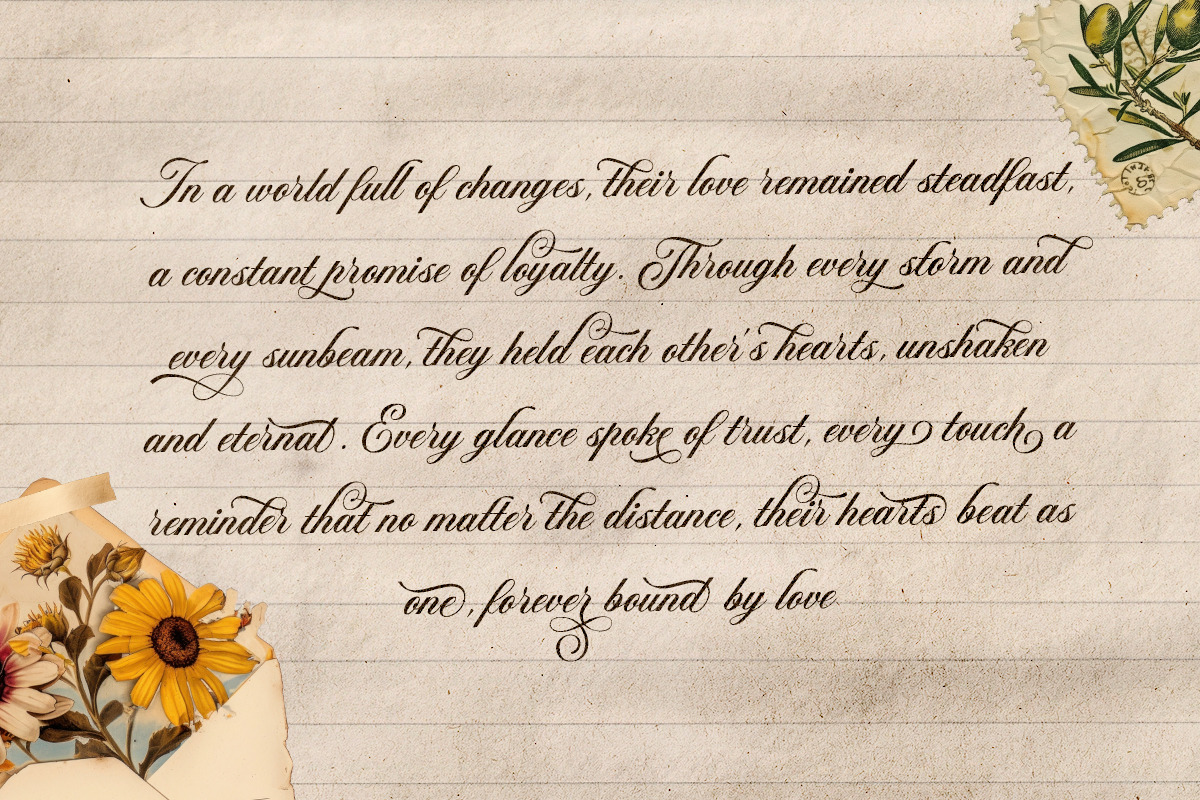 In a world full of changes, their love remained steadfast,
a constant promise of loyalty. Through every storm and
every sunbeam, they held each other's hearts, unshaken
and eternal. Every glance spoke of trust, every touch a
reminder that no matter the distance, their hearts beat as
one, forever bound by love